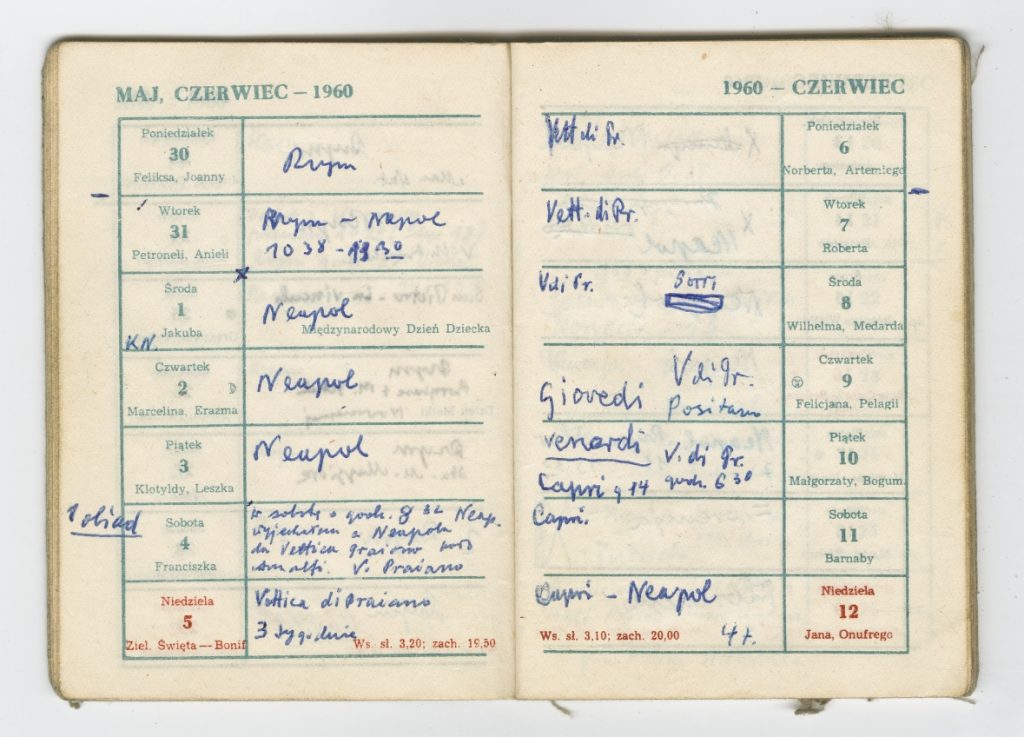 MAJ, CZERWIEC — 1960
Poniedziałek
30
Feliksa, Joanny
Rzym
Wtorek
31
Petroneli, Anieli
Rzym – Neapol
10 38 - 13 30
Środa
1
Jakuba
KN.
Neapol
Międzynarodowy Dzień Dziecka
Czwartek
2
Marcelina, Erazma
Neapol
Piątek
3
Klotyldy, Leszka
Neapol
1 obiad
Sobota
4
Franciszka
w sobotę o godz. 8 32 Neap.
wyjechałem z Neapolu
do Vettica
Amalfi. V. Praiano
Niedziela
5
Ziel. Święta — Bonif
Vettica di Praiano
3 tygodnie
Ws. sł. 3,20; zach. 19,50
1960 — CZERWIEC
Vett di Pr.
Poniedziałek
6
Norberta, Artemiego
Vett. di Pr.
Wtorek
7
Roberta
V di Pr.
Środa
8
Wilhelma, Medarda
Giovedi
V di Pr.
Positano
Czwartek
9
Felicjana, Pelagii
Venerdi
V. di Pr.
Capri g 14 godz. 6 30
Piątek
10
Małgorzaty, Bogum.
Capri.
Sobota
11
Barnaby
Capri – Neapol
Ws. sł. 3,10; zach. 20,00
4 t.
Niedziela
12
Jana, Onufrego